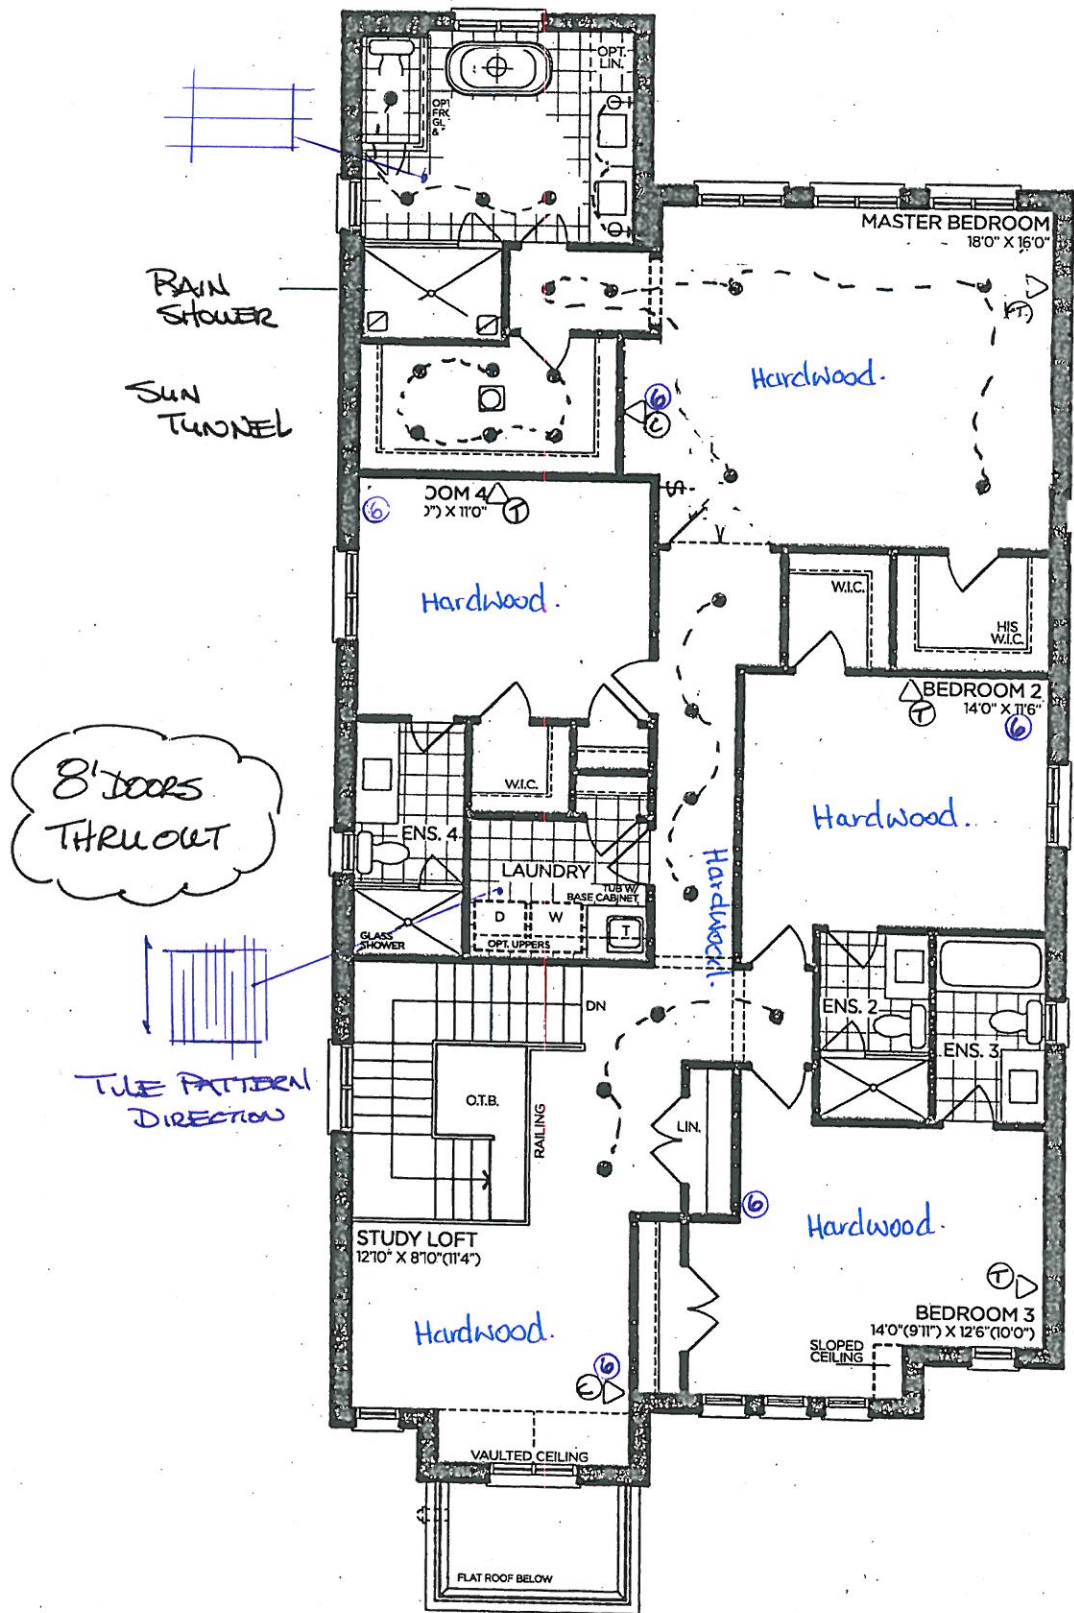 OPT.
LIN.
MASTER BEDROOM
18'0" X 16'0"
RAIN
SHOWER
SUN
TUNNEL
Hardwood.
6
C
OOM 4
0") X 11'0"
T
6
Hardwood.
W.I.C.
HIS
W.I.C.
BEDROOM 2
14'0" X 11'6"
T
6
8' DOORS
THRU OUT
W.I.C.
ENS. 4
LAUNDRY
TUB W/
BASE CABINET
D
W
T
OPT. UPPERS
GLASS
SHOWER
Hardwood.
Hardwood.
DN
ENS. 2
ENS. 3
TILE PATTERN
DIRECTION
O.T.B.
RAILING
LIN.
6
STUDY LOFT
12'10" X 8'10"(11'4")
Hardwood.
Hardwood.
T
BEDROOM 3
14'0"(9'11") X 12'6"(10'0")
SLOPED
CEILING
6
VAULTED CEILING
FLAT ROOF BELOW